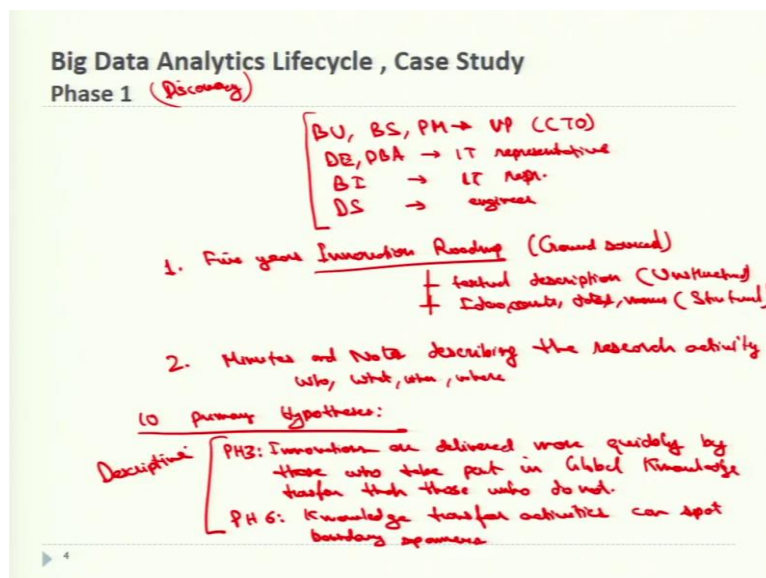 Big Data Analytics Lifecycle , Case Study
Phase 1 (Discovery)
BU, BS, PM → VP (CTO)
DE, DBA → IT representative
BI → IT repr.
DS → engineer
1. Five years Innovation Roadmap (Crowd sourced)
textual description (Unstructured)
Idea counts, dates, names (Structured)
2. Minutes and Notes describing the research activity
who, what, when, where
10 primary Hypotheses:
Descriptive
PH3: Innovations are delivered more quickly by
those who take part in Global Knowledge
transfer than those who do not.
PH 6: Knowledge transfer activities can spot
boundary spanners
4